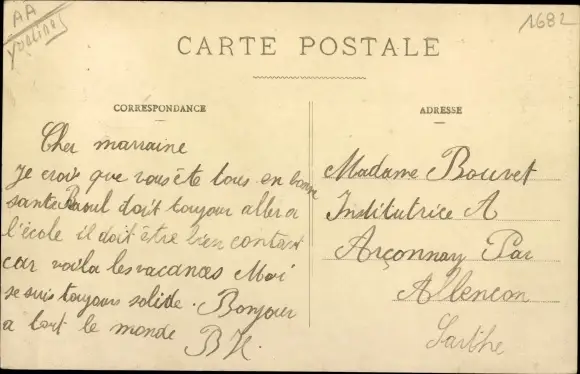 AA
Yvelines
1682
CARTE POSTALE
CORRESPONDANCE
Cher marraine
Je crois que vous éte tous en bonne
santé Raoul doit toujour aller a
l'école il doit être bien contant
car voila les vacances Moi
je suis toujours solide. Bonjour
a tout le monde B H.
ADRESSE
Madame Bouvet
Institutrice A
Arçonnay Par
Allencon
Sarthe